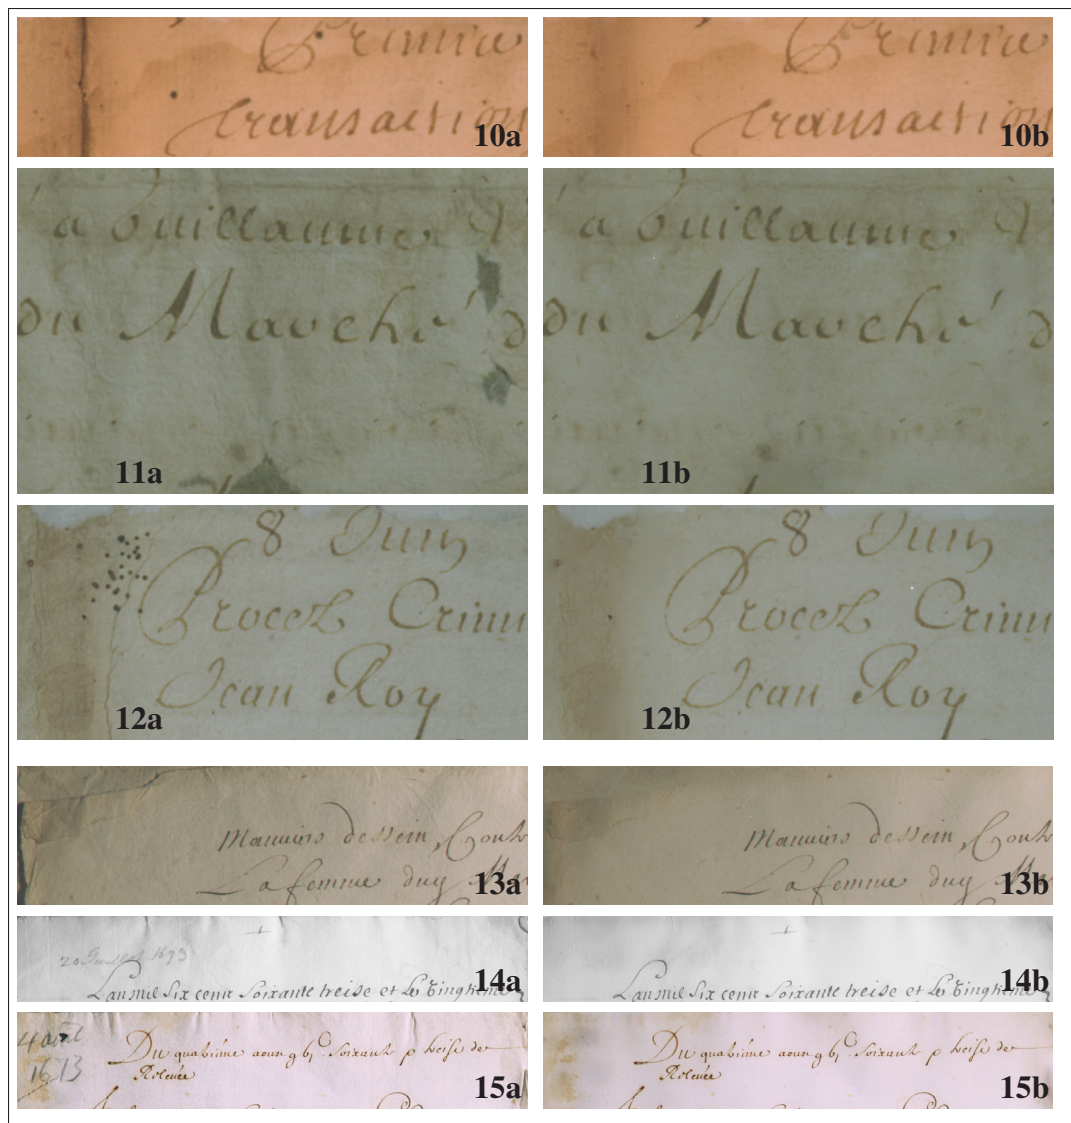 Crimine
transaction
10a
Crimine
transaction
10b
a Guillaume
du Marché d
11a
a Guillaume
du Marché d
11b
8 Juin
Procez Crimi
Jean Roy
12a
8 Juin
Procez Crimi
Jean Roy
12b
Mauvais dessein, Cont
La femme duq
13a
Mauvais dessein, Cont
La femme duq
13b
20 Juillet 1673
Lan mil Six cent Soixante treise et Le Vingtieme
14a
Lan mil Six cent Soixante treise et Le Vingtieme
14b
4 avril
1673
Du quatriéme Soixante treise de
Relevée
15a
Du quatriéme Soixante treise de
Relevée
15b